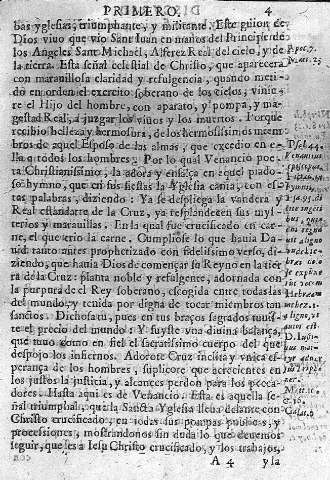 PRIMERO. 4
bas yglesias, triumphante, y militante. Este guion de
Dios viuo que vio Sant Iuan en manos del Principe de
los Angeles Sant Michael, Alferez Real del cielo, y de
la tierra. Esta señal celestial de Christo, que aparecera
con marauillosa claridad y refulgencia, quando meti-
do en orden el exercito soberano de los cielos, vinie-
re el Hijo del hombre, con aparato, y pompa, y ma-
gestad Real, a juzgar los viuos y los muertos. Porque
recibio belleza y hermosura, de los hermosissimos miem
bros de aquel Esposo de las almas, que excedio en e-
lla a todos los hombres: Por lo qual Venancio poe-
ta Christianissimo, la adora y ensalça en aquel piado-
so hymno, que en sus fiestas la Yglesia canta, con es-
tas palabras, diziendo: Ya se despliega la vandera y
Real estandarte de la Cruz, ya resplandecen sus mys-
terios y marauillas. En la qual fue crucificado en car-
ne, el que crio la carne. Cumpliose lo que hauia Da-
uid tanto antes prophetizado con fidelissimo verso, di-
ziendo, que hauia Dios de começar su Reyno en la tier
ra de la Cruz: planta noble y refulgente, adornada con
la purpura de el Rey soberano, escogida entre todas las
del mundo, y tenida por digna de tocar miembros tan
sanctos. Dichosa tu, pues en tus braços sagrados tuuis-
te el precio del mundo: Y fuyste vna diuina balança,
que tuuo como en fiel el sacratissimo cuerpo del que
despojo los infiernos. Adorote Cruz inclita y vnica es-
perança de los hombres, suplicote que acrecientes en
los justos la justicia, y alcances perdon para los pecca-
dores. Hasta aqui es de Venancio. Esta es aquella se-
ñal triumphal, que la Sancta Yglesia lleua delante con
Christo crucificado, en todas sus pompas publicas, y
processiones, mostrandonos sin duda lo que deuemos
seguir, que les a Iesu Christo crucificado, y los trabajos,
A 4 yla
Apoc. 7.
Psal. 44.
Venancius